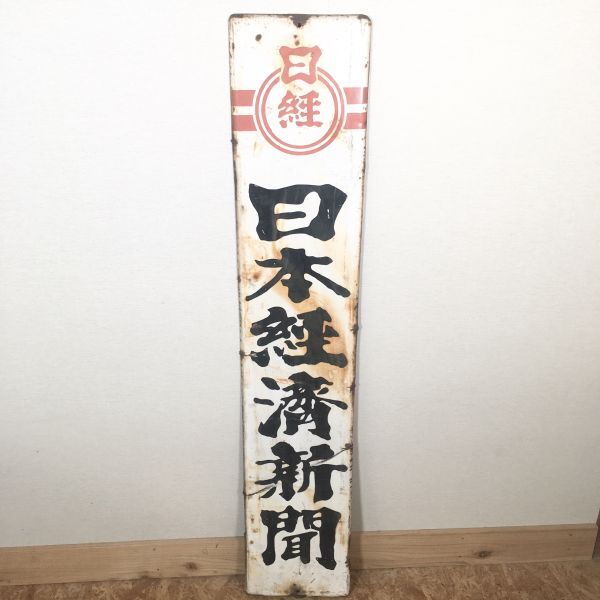 日経
日本経済新聞